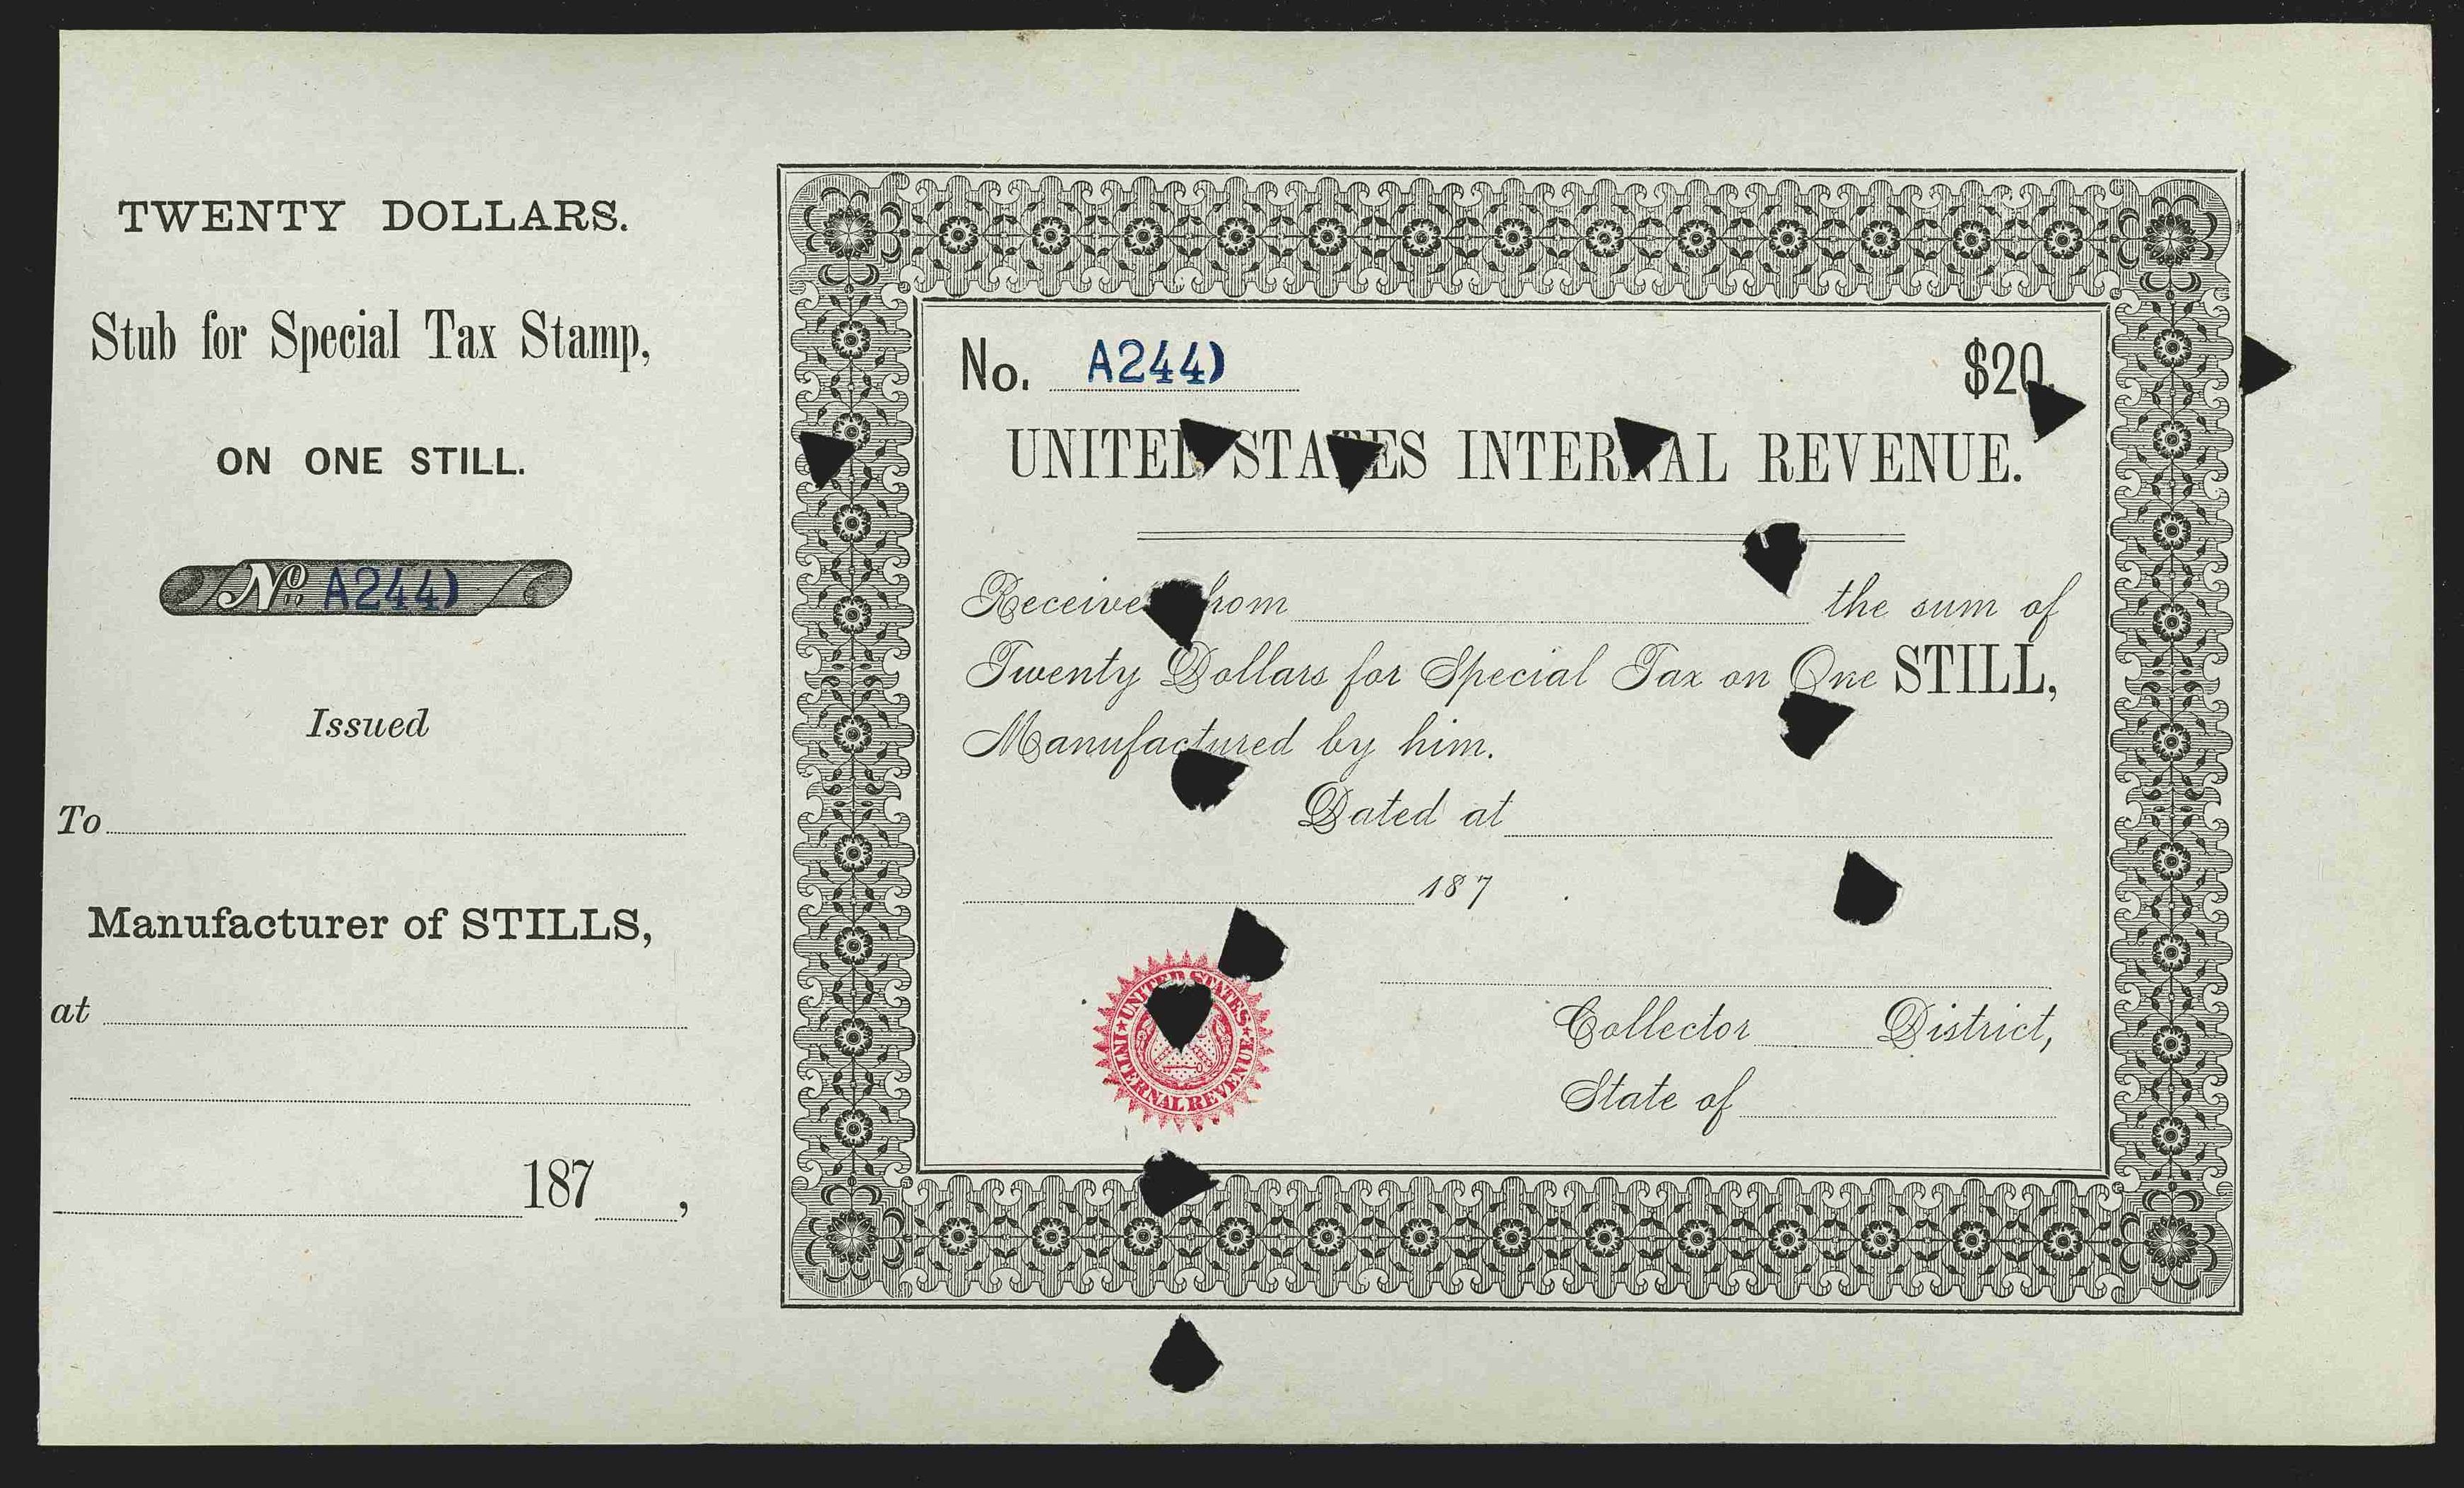 TWENTY DOLLARS.
Stub for Special Tax Stamp,
ON ONE STILL.
No. A244)
Issued
To
Manufacturer of STILLS,
at
187 ,
No. A244)
$20.
UNITED STATES INTERNAL REVENUE.
Received from the sum of
Twenty Dollars for Special Tax on One STILL,
Manufactured by him.
Dated at
187 .
UNITED STATES
INTERNAL REVENUE
Collector District,
State of